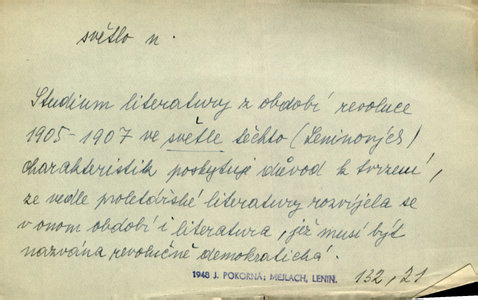 světlo n.
Studium literatury z období revoluce
1905-1907 ve světle těchto (Leninových)
charakteristik poskytuje důvod k tvrzení,
že vedle proletářské literatury rozvíjela se
v onom období i literatura, jež musí být
nazvána revolučně demokratická.
1948 J. POKORNÁ: MEJLACH, LENIN. 132,21